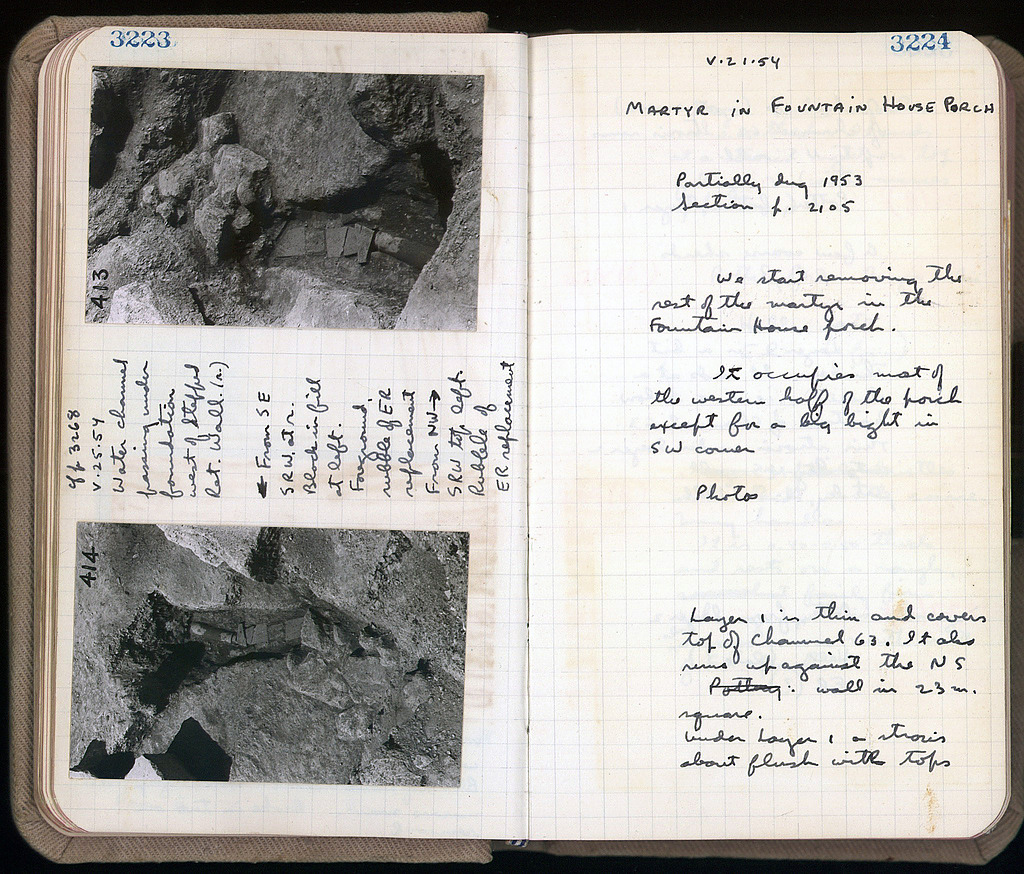 3223
413
Cf p 3268
V.25.54
Water channel
passing under
foundation
west of Stepped
Ret. Wall. (n.)
← From SE
SRW. at r.
Block in fill
at left.
Foreground,
rubble of ER
replacement
From NW →
SRW top left.
Rubble of
ER replacement
414
3224
V.21.54
MARTYR IN FOUNTAIN HOUSE PORCH
Partially dug 1953
Section p. 2105
We start removing the
rest of the martyr in the
Fountain House porch.
It occupies most of
the western half of the porch
except for a big bight in
SW corner
Photos
Layer 1 is thin and covers
top of channel 63. It also
runs up against the NS
Pottery. wall in 23 m.
square.
Under Layer 1 a strosis
about flush with tops